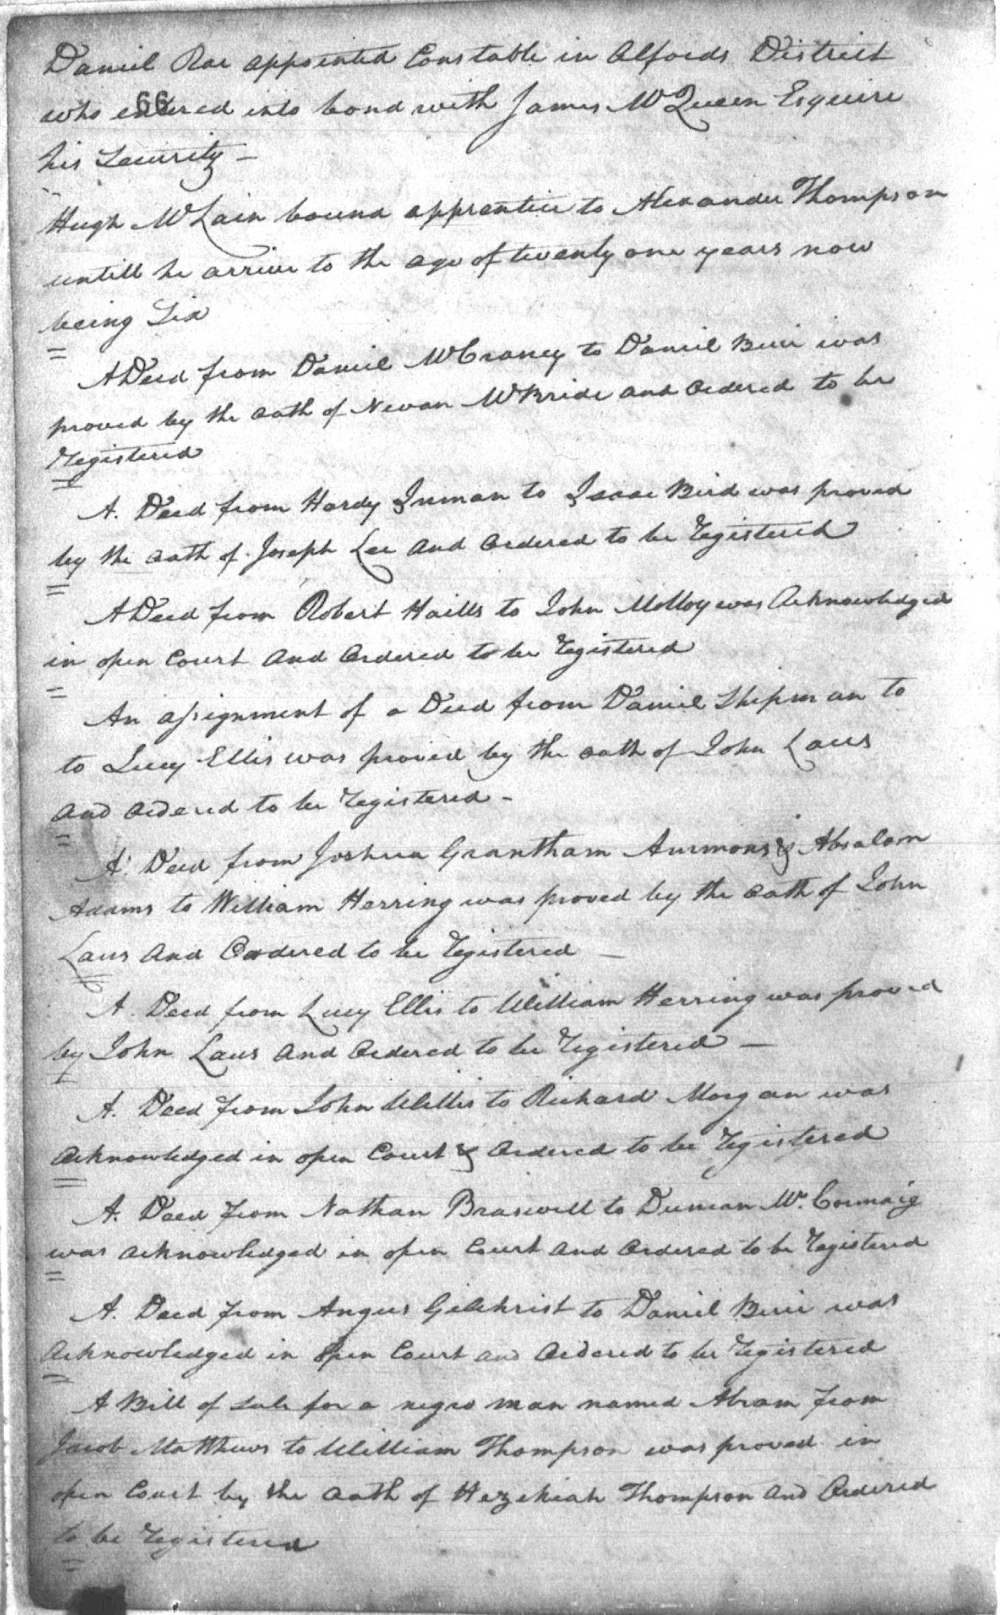 Daniel Rae appointed Constable in Alfords District
66
who entered into bond with James McQueen Esquire
his Security -
Hugh McLain bound apprentice to Alexander Thompson
untill he arrive to the age of twenty one years now
being Six
A Deed from Daniel McCraney to Daniel was
proved by the oath of Nevan McBride and Ordered to be
Registered
A. Deed from Hardy Inman to Isaac Bird was proved
by the oath of Joseph Lee And Ordered to be Registered
A Deed from Robert Haills to John Molloy was Acknowledged
in open Court And Ordered to be Registered
An assignment of a Deed from Daniel Shipman to
to Lucy Ellis was proved by the oath of John Laws
And Ordered to be Registered -
A. Deed from Joshua Grantham Ammons & Absalom
Adams to William Herring was proved by the oath of John
Laws And Ordered to be Registered -
A. Deed from Lucy Ellis to William Herring was proved
by John Laws And Ordered to be Registered -
A. Deed from John Willis to Richard Morgan was
Acknowledged in open Court & Ordered to be Registered
A. Deed from Nathan Braswell to Duncan Mc. Cormaig
was acknowledged in open Court And Ordered to be Registered
A. Deed from Angus Gilchrist to Daniel was
Acknowledged in Open Court and Ordered to be Registered
A Bill of Sale for a negro man named Abram from
Jacob Matthews to William Thompson was proved in
open Court by the oath of Hezekiah Thompson And Ordered
to be Registered